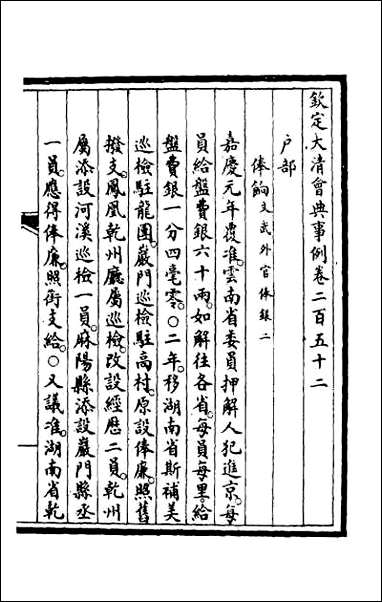 欽定大清會典事例卷二百五十二
戶部
俸餉文武外官俸銀二
嘉慶元年覆准雲南省委員押解人犯進京。每
員給盤費銀六十兩。如解往各省。每員每里。給
盤費銀一分四毫零。○二年。移湖南省斯補美
巡檢駐龍團。巖門巡檢駐高村。原設俸廉。照舊
撥支。鳳凰乾州廳屬巡檢。改設經歷二員。乾州
屬添設河溪巡檢一員。麻陽縣添設巖門縣丞
一員。應得俸廉。照銜支給。○又議准。湖南省乾